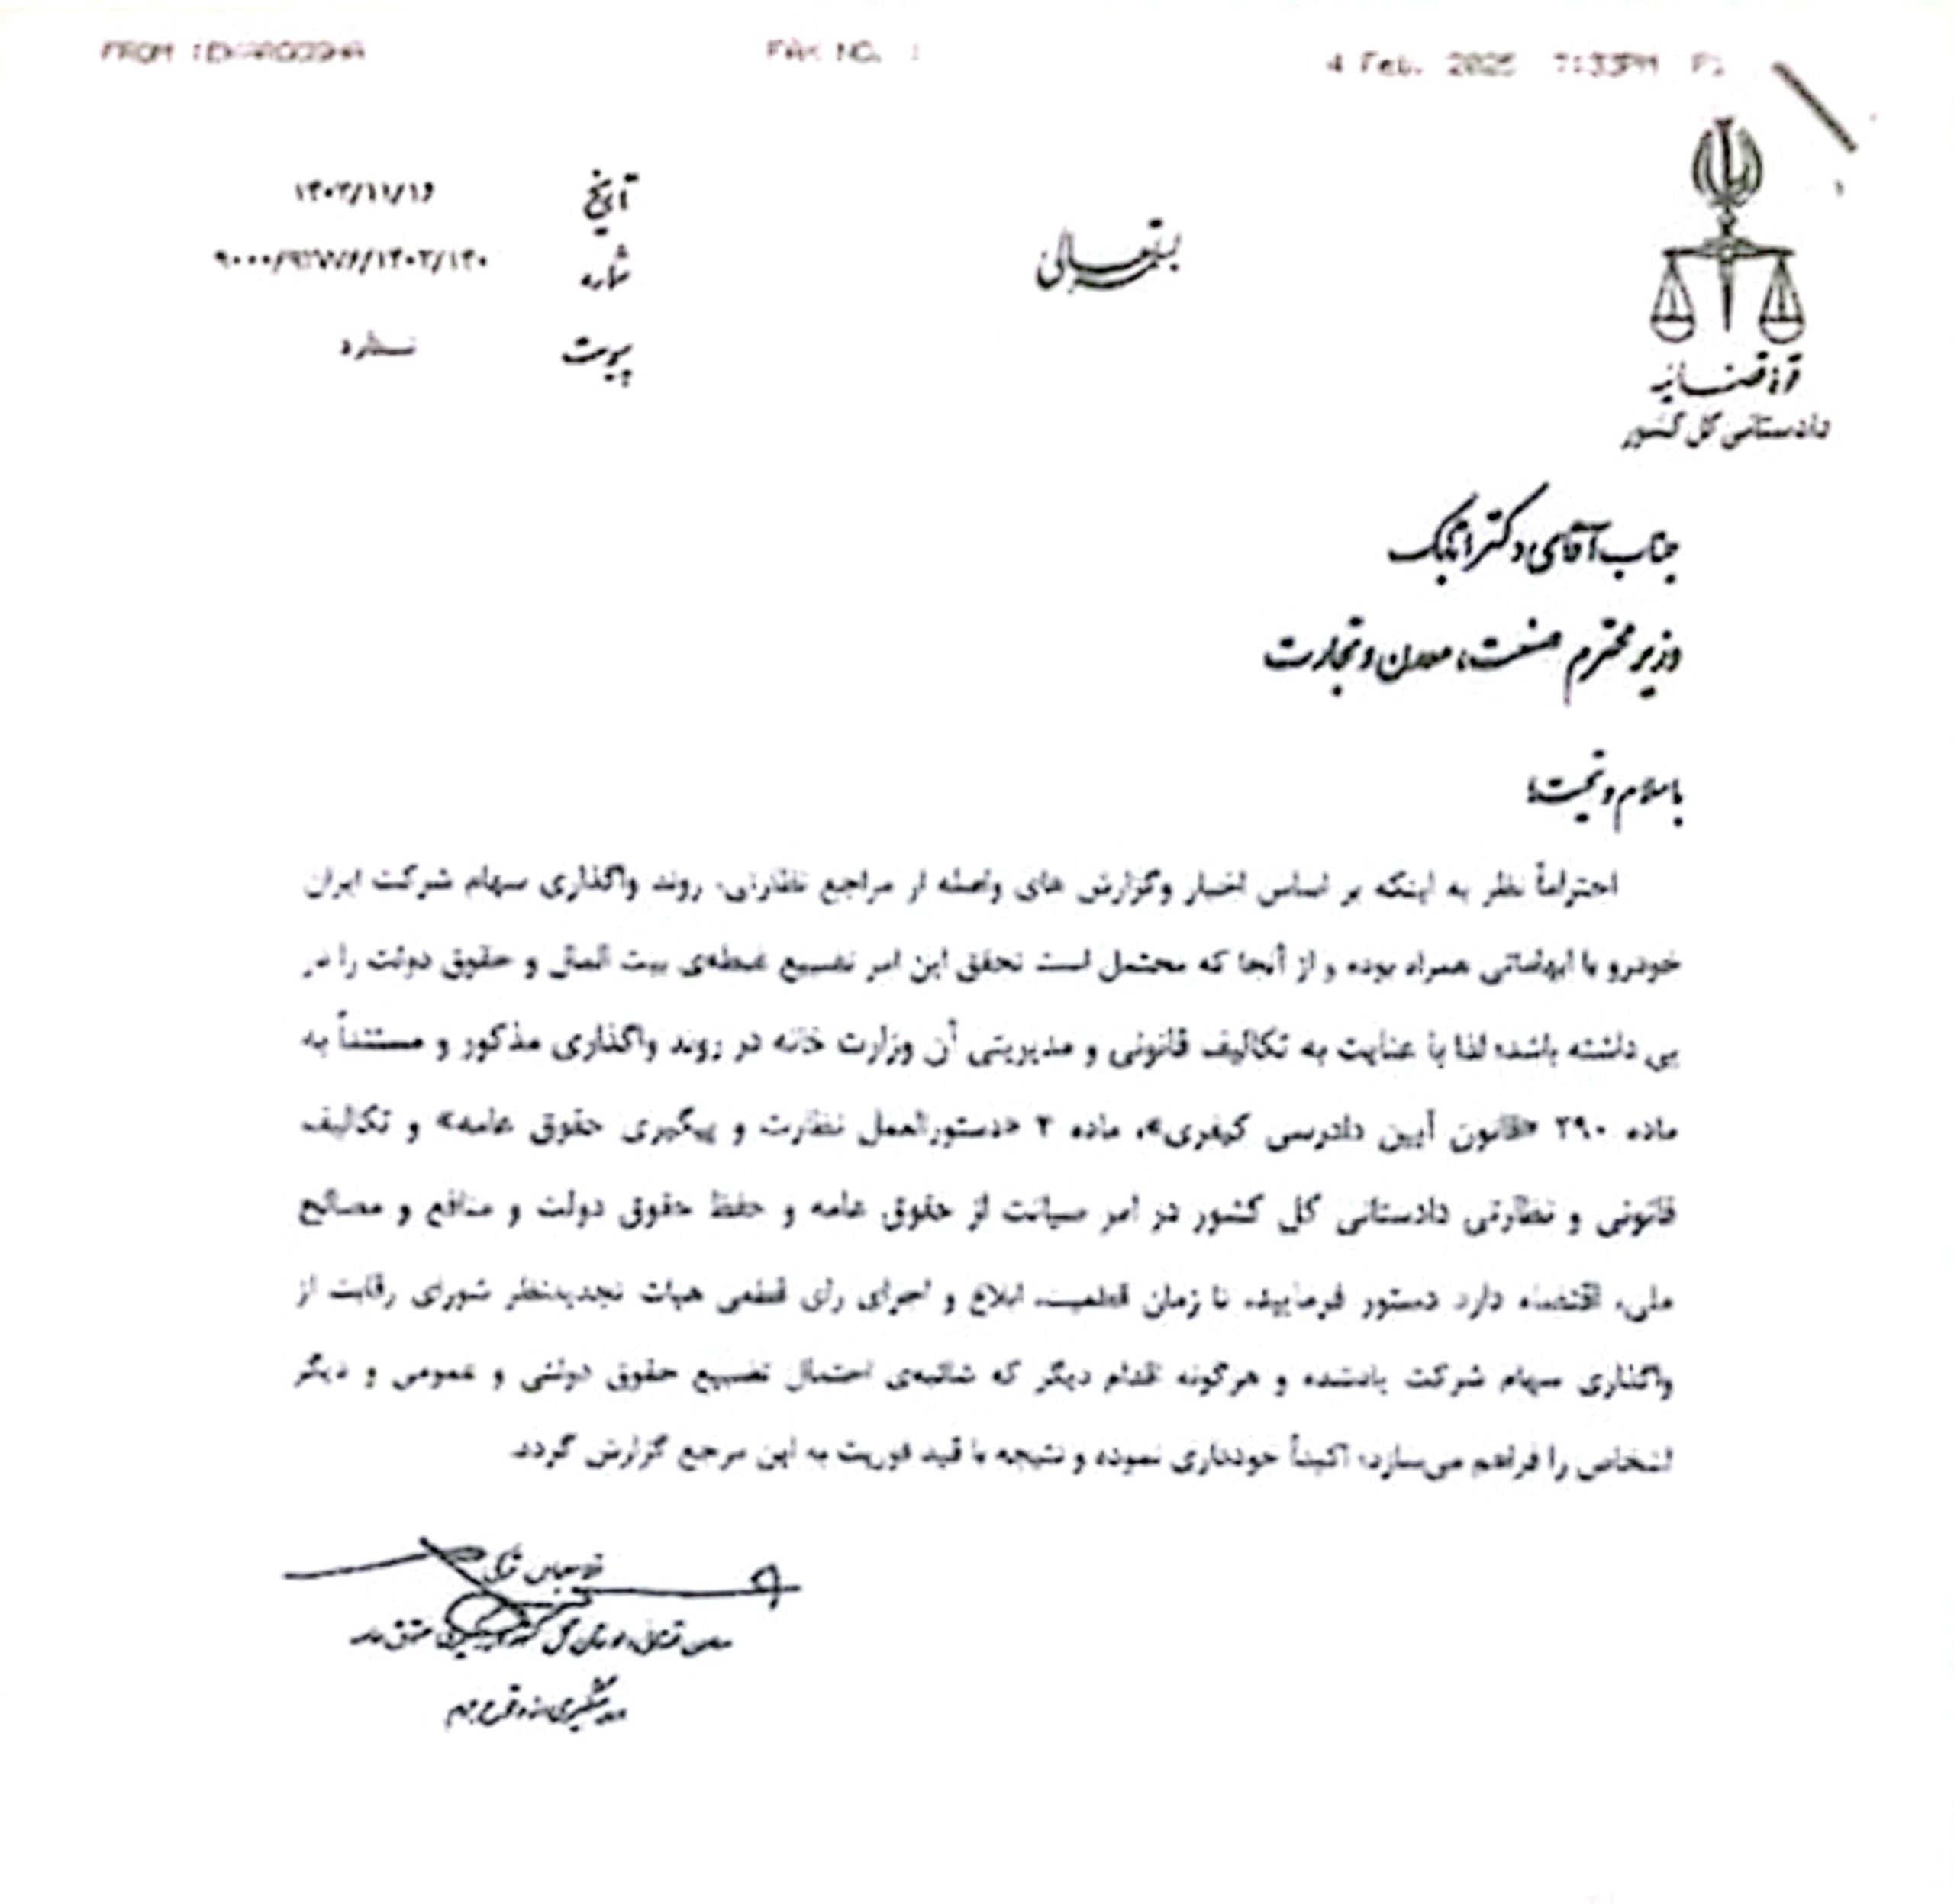 FAX NO. :
4 Feb. 2025 7:33PM P1
بسمه تعالی
تاریخ ۱۴۰۳/۱۱/۱۶
شماره
پیوست ندارد
قوه قضائیه
دادستانی کل کشور
جناب آقای دکتر اتابک
وزیر محترم صنعت، معدن و تجارت
با سلام و تحیت؛
احتراماً نظر به اینکه بر اساس اخبار وگزارش های واصله از مراجع نظارتی، روند واگذاری سهام شرکت ایران
خودرو با ابهاماتی همراه بوده و از آنجا که محتمل است تحقق این امر تضییع غبطه‌ی بیت المال و حقوق دولت را در
پی داشته باشد؛ لذا با عنایت به تکالیف قانونی و مدیریتی آن وزارت خانه در روند واگذاری مذکور و مستنداً به
ماده ۲۹۰ «قانون آیین دادرسی کیفری»، ماده ۲ «دستورالعمل نظارت و پیگیری حقوق عامه» و تکالیف
قانونی و نظارتی دادستانی کل کشور در امر صیانت از حقوق عامه و حفظ حقوق دولت و منافع و مصالح
ملی، اقتضاء دارد دستور فرمایید، تا زمان قطعیت، ابلاغ و اجرای رای قطعی هیات تجدیدنظر شورای رقابت از
واگذاری سهام شرکت یادشده و هرگونه اقدام دیگر که شائبه‌ی احتمال تضییع حقوق دولتی و عمومی و دیگر
اشخاص را فراهم می‌سازد؛ اکیداً خودداری نموده و نتیجه با قید فوریت به این مرجع گزارش گردد.
غلامعباس ترکی
معاون قضائی دادستان کل کشور حقوق عامه
و پیشگیری از وقوع جرم